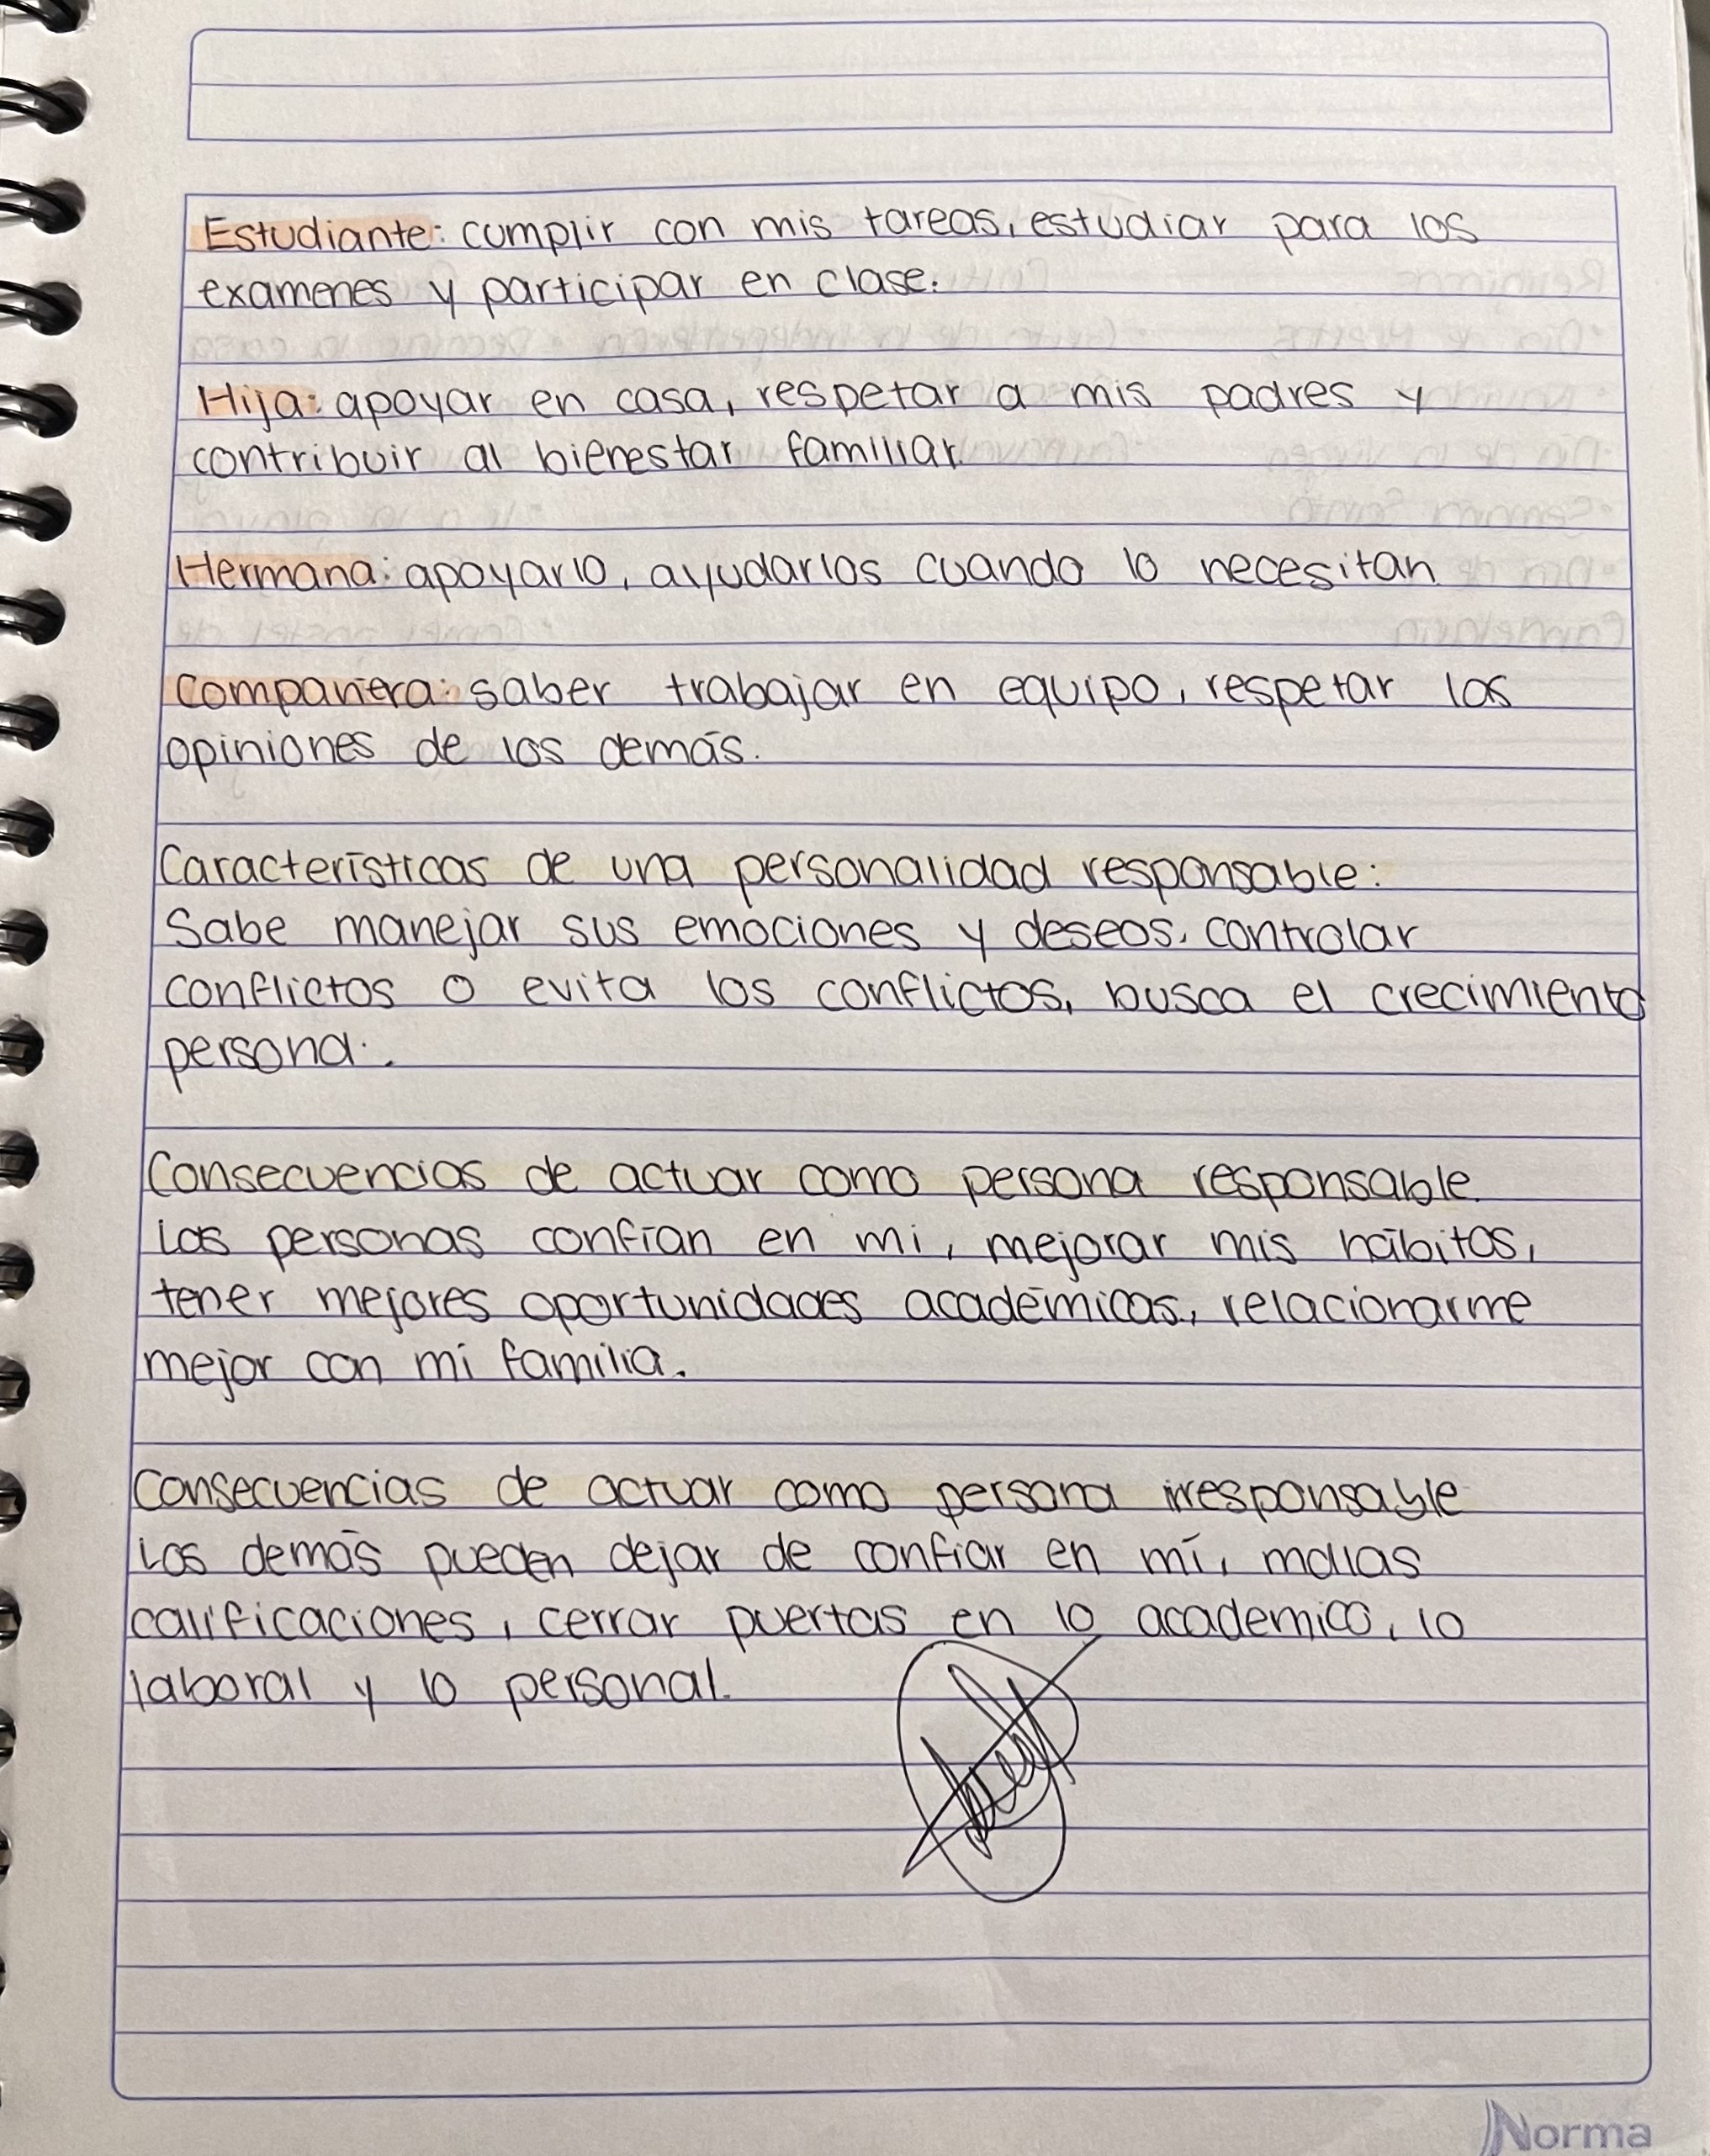 Estudiante: cumplir con mis tareas, estudiar para los
examenes y participar en clase.
Hija: apoyar en casa, respetar a mis padres y
contribuir al bienestar familiar.
Hermana: apoyarlo, ayudarlos cuando lo necesitan
Compañera: saber trabajar en equipo, respetar las
opiniones de los demás.
Características de una personalidad responsable:
Sabe manejar sus emociones y deseos, controlar
conflictos o evita los conflictos, busca el crecimiento
personal.
Consecuencias de actuar como persona responsable.
Las personas confían en mi, mejorar mis hábitos,
tener mejores oportunidades académicas, relacionarme
mejor con mi familia.
Consecuencias de actuar como persona irresponsable
Los demás pueden dejar de confiar en mí, malas
calificaciones, cerrar puertas en lo academico, lo
laboral y lo personal.
Norma